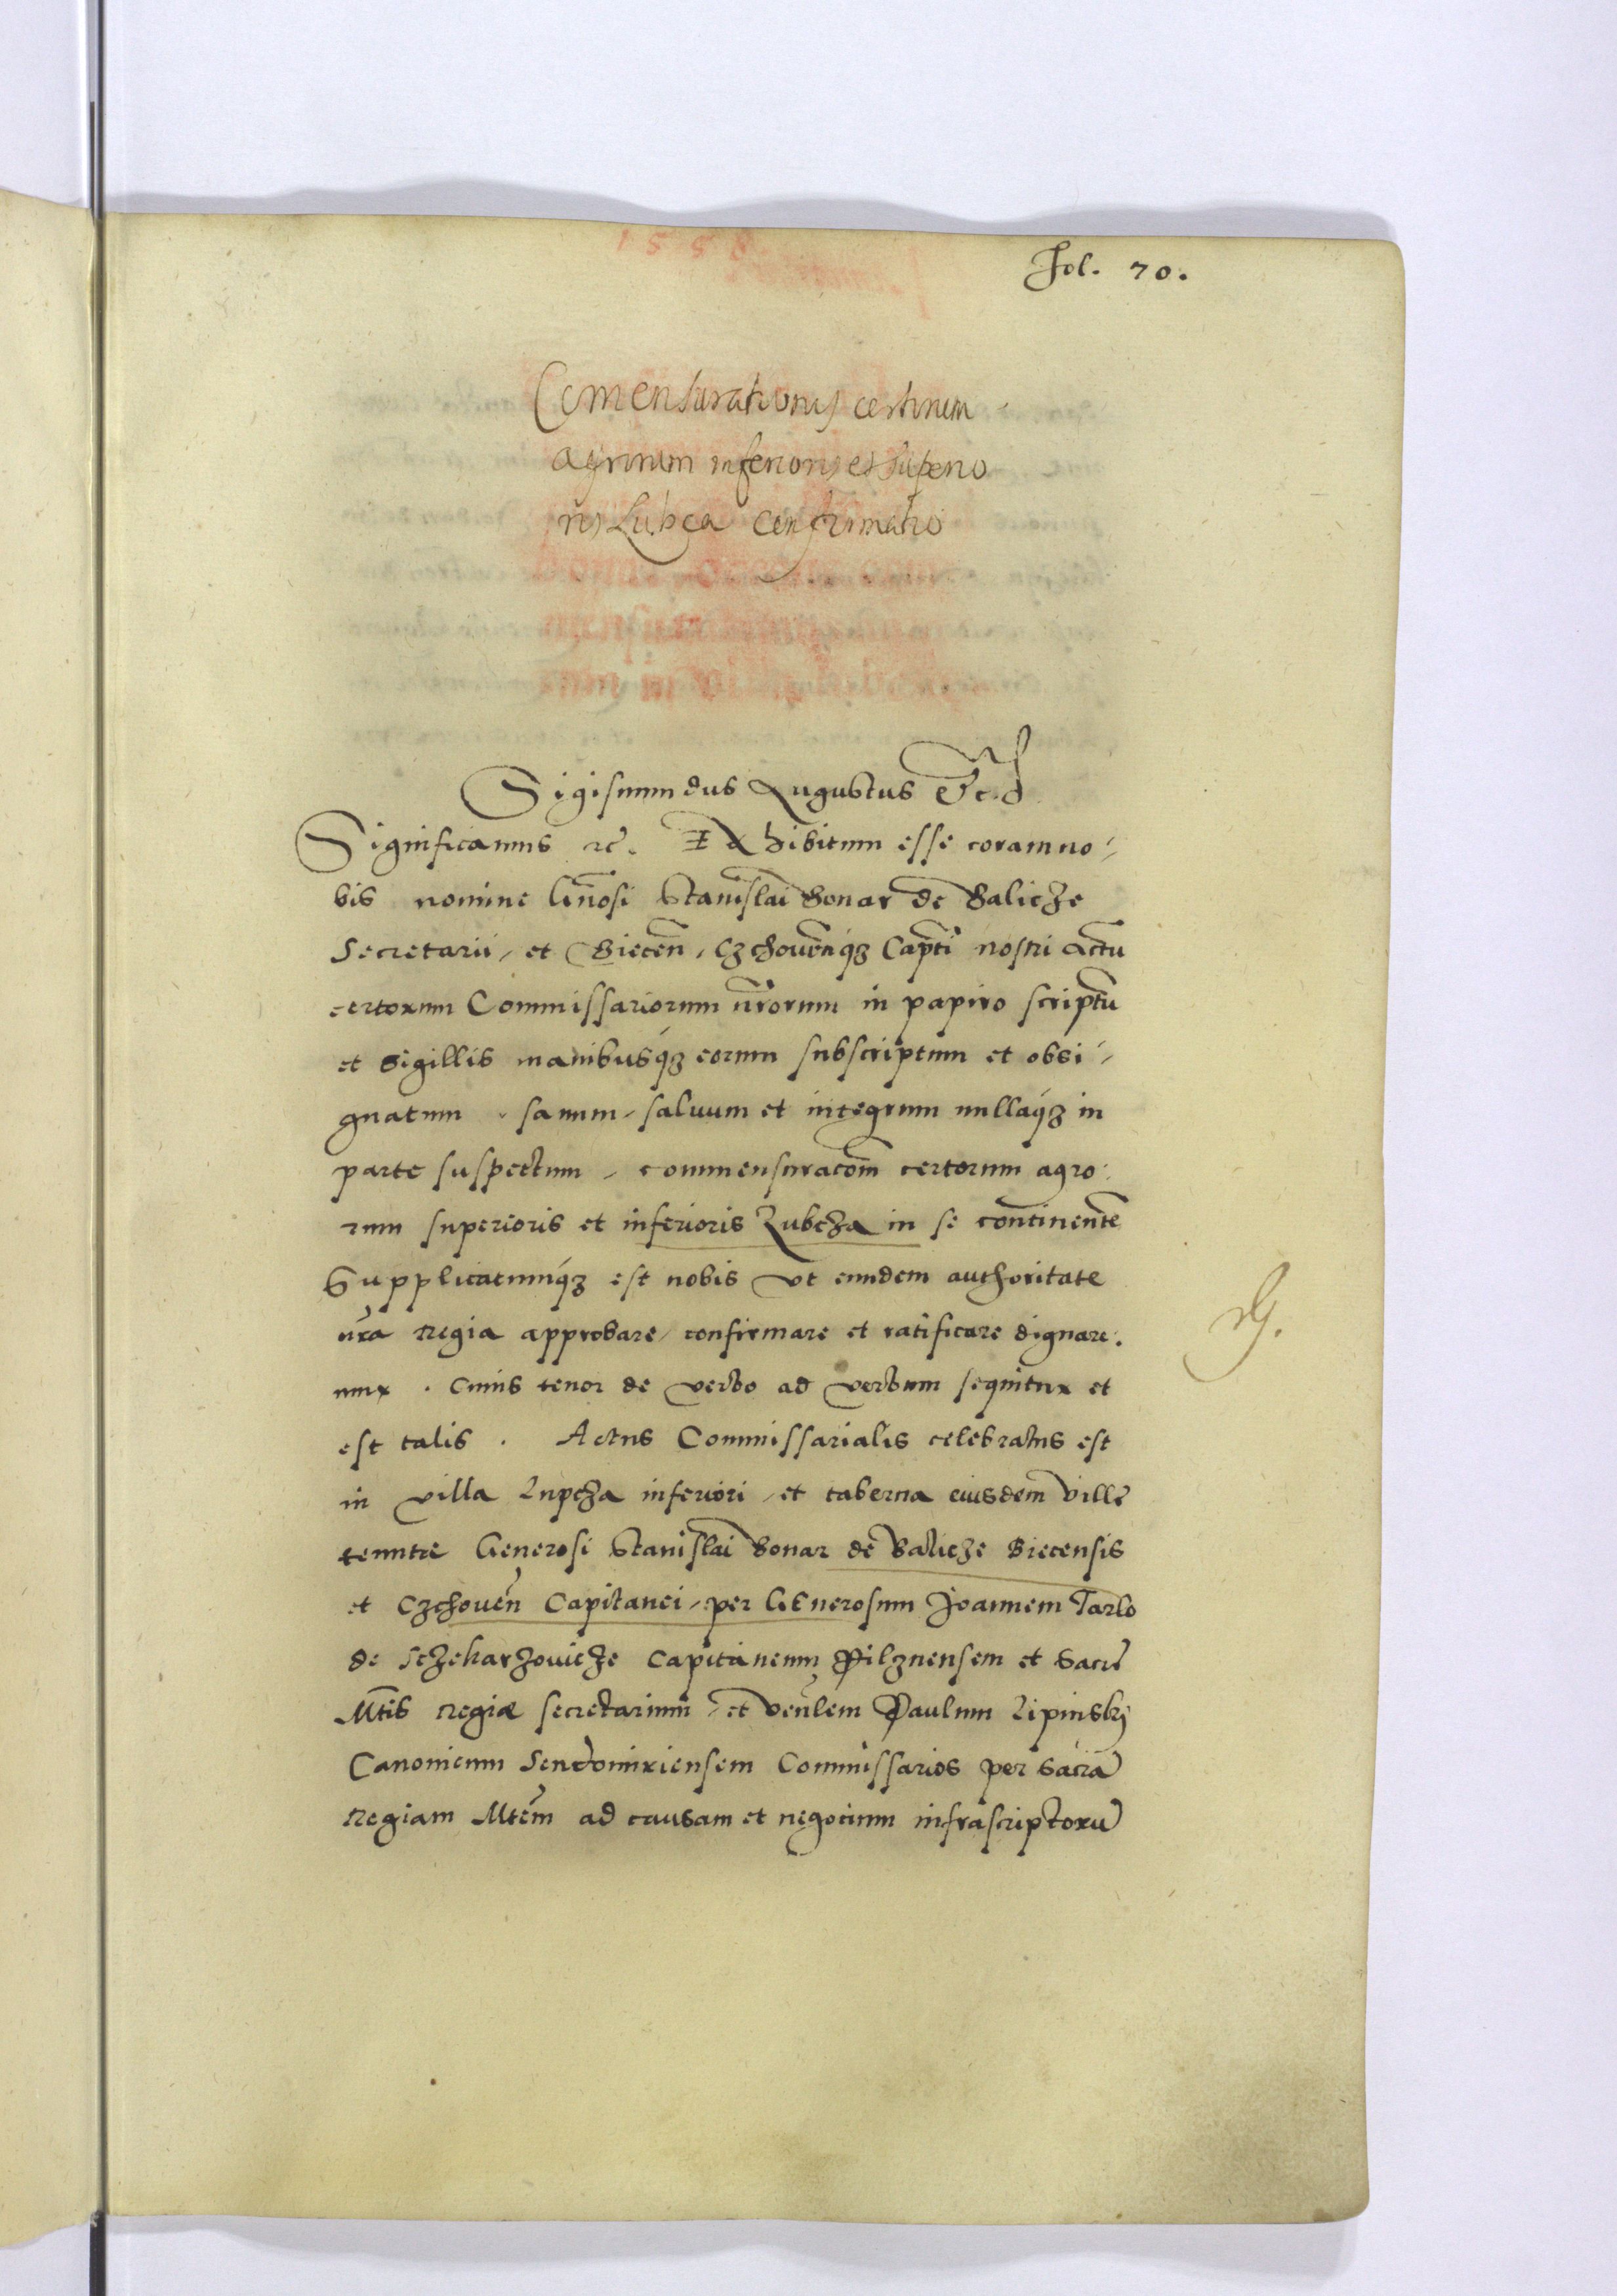 1558
Fol. 70.
Comensurationis certorum
agrorum inferioris et Superio
ris Lubça confirmatio
Sigismundus Augustus Etc.
Significamus etc. Exhibitum esse coram no-
bis nomine Gnosi Stanislai Bonar de Balicze
Secretarii, et Biecen, Czchovenq3 Capti nostri Actu
certorum Commissariorum nrorum in papiro scriptu
et Sigillis manibusq3 eorum subscriptum et obsi-
gnatum, sanum, salvum et integrum nullaq3 in
parte suspectum, commensuracom certorum agro:
rum superioris et inferioris Lubcza in se continente
Supplicatumq3 est nobis Vt eundem authoritate
nra Regia approbare, confirmare et ratificare dignare:
mur. Cuius tenor de verbo ad verbum sequitur et
est talis. Actus Commissarialis celebratus est
in villa Lupcza inferiori, et taberna eiusdem ville
tenutæ Generosi Stanislai Bonar de Balicze Biecensis
et Czchoven Capitanei, per GEnerosum Joannem Tarlo
de Sczekarzovicze Capitaneum Pilznensem et Sacre
Mtis Regiæ secretarium, et Venlem Paulum Lipinskj
Canonicum Sendomiriensem Commissarios per Sacra
Regiam Mtem ad causam et negocium infrascriptoru